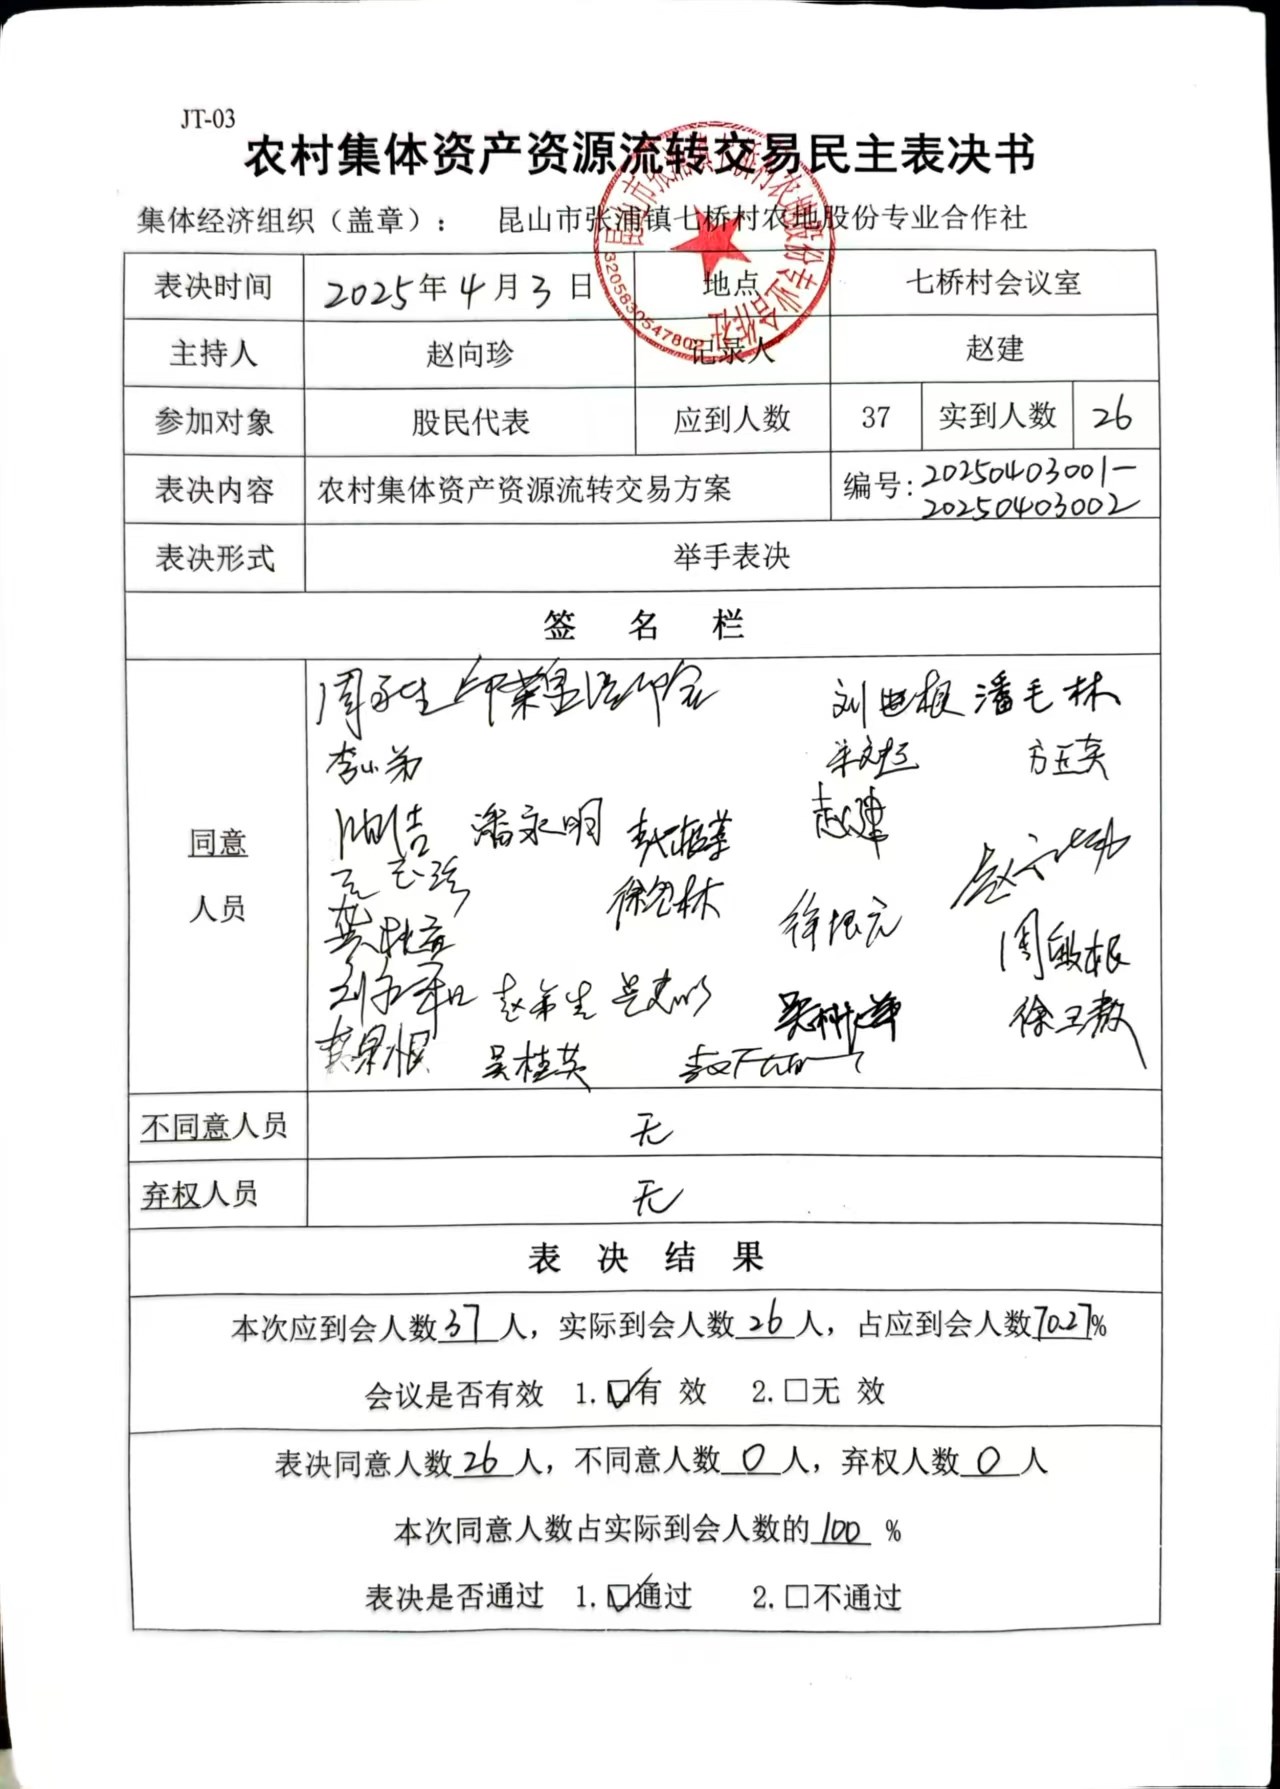 JT-03
农村集体资产资源流转交易民主表决书
集体经济组织（盖章）： 昆山市张浦镇七桥村农地股份专业合作社
昆山市张浦镇七桥村农地股份专业合作社
3205830547802
表决时间 2025年4月3日 地点 七桥村会议室
主持人 赵向珍 记录人 赵建
参加对象 股民代表 应到人数 37 实到人数 26
表决内容 农村集体资产资源流转交易方案 编号：20250403001-
20250403002
表决形式 举手表决
签 名 栏
同意
人员
刘 根 潘毛林
李小弟 方正英
潘永明 赵建
徐 林 徐根元
周敏根
吴桂英
不同意人员 无
弃权人员 无
表 决 结 果
本次应到会人数37人，实际到会人数26人，占应到会人数70.27%
会议是否有效 1.☑有 效 2.□无 效
表决同意人数26人，不同意人数0人，弃权人数0人
本次同意人数占实际到会人数的100 %
表决是否通过 1.☑通过 2.□不通过